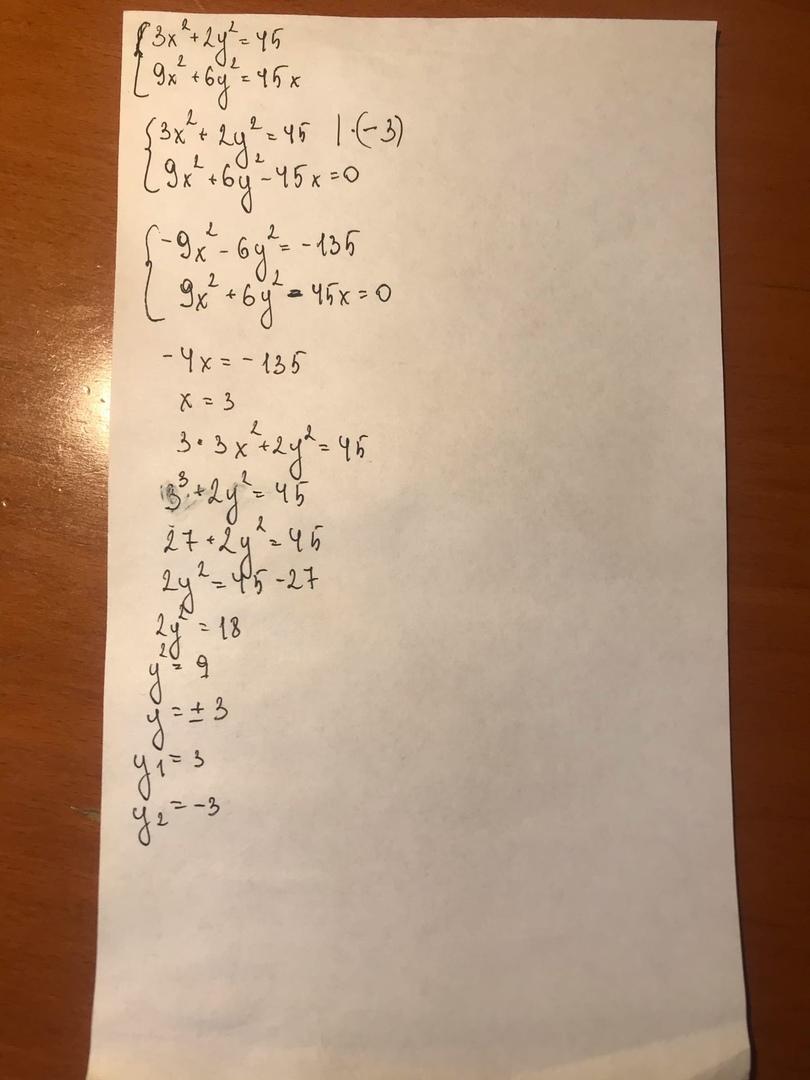 {3x²+2y²=45
{9x²+6y²=45x
{3x²+2y²=45 |·(-3)
{9x²+6y²-45x=0
{-9x²-6y²=-135
{9x²+6y²-45x=0
-4x=-135
x=3
3·3x²+2y²=45
3³+2y²=45
27+2y²=45
2y²=45-27
2y²=18
y²=9
y=±3
y₁=3
y₂=-3